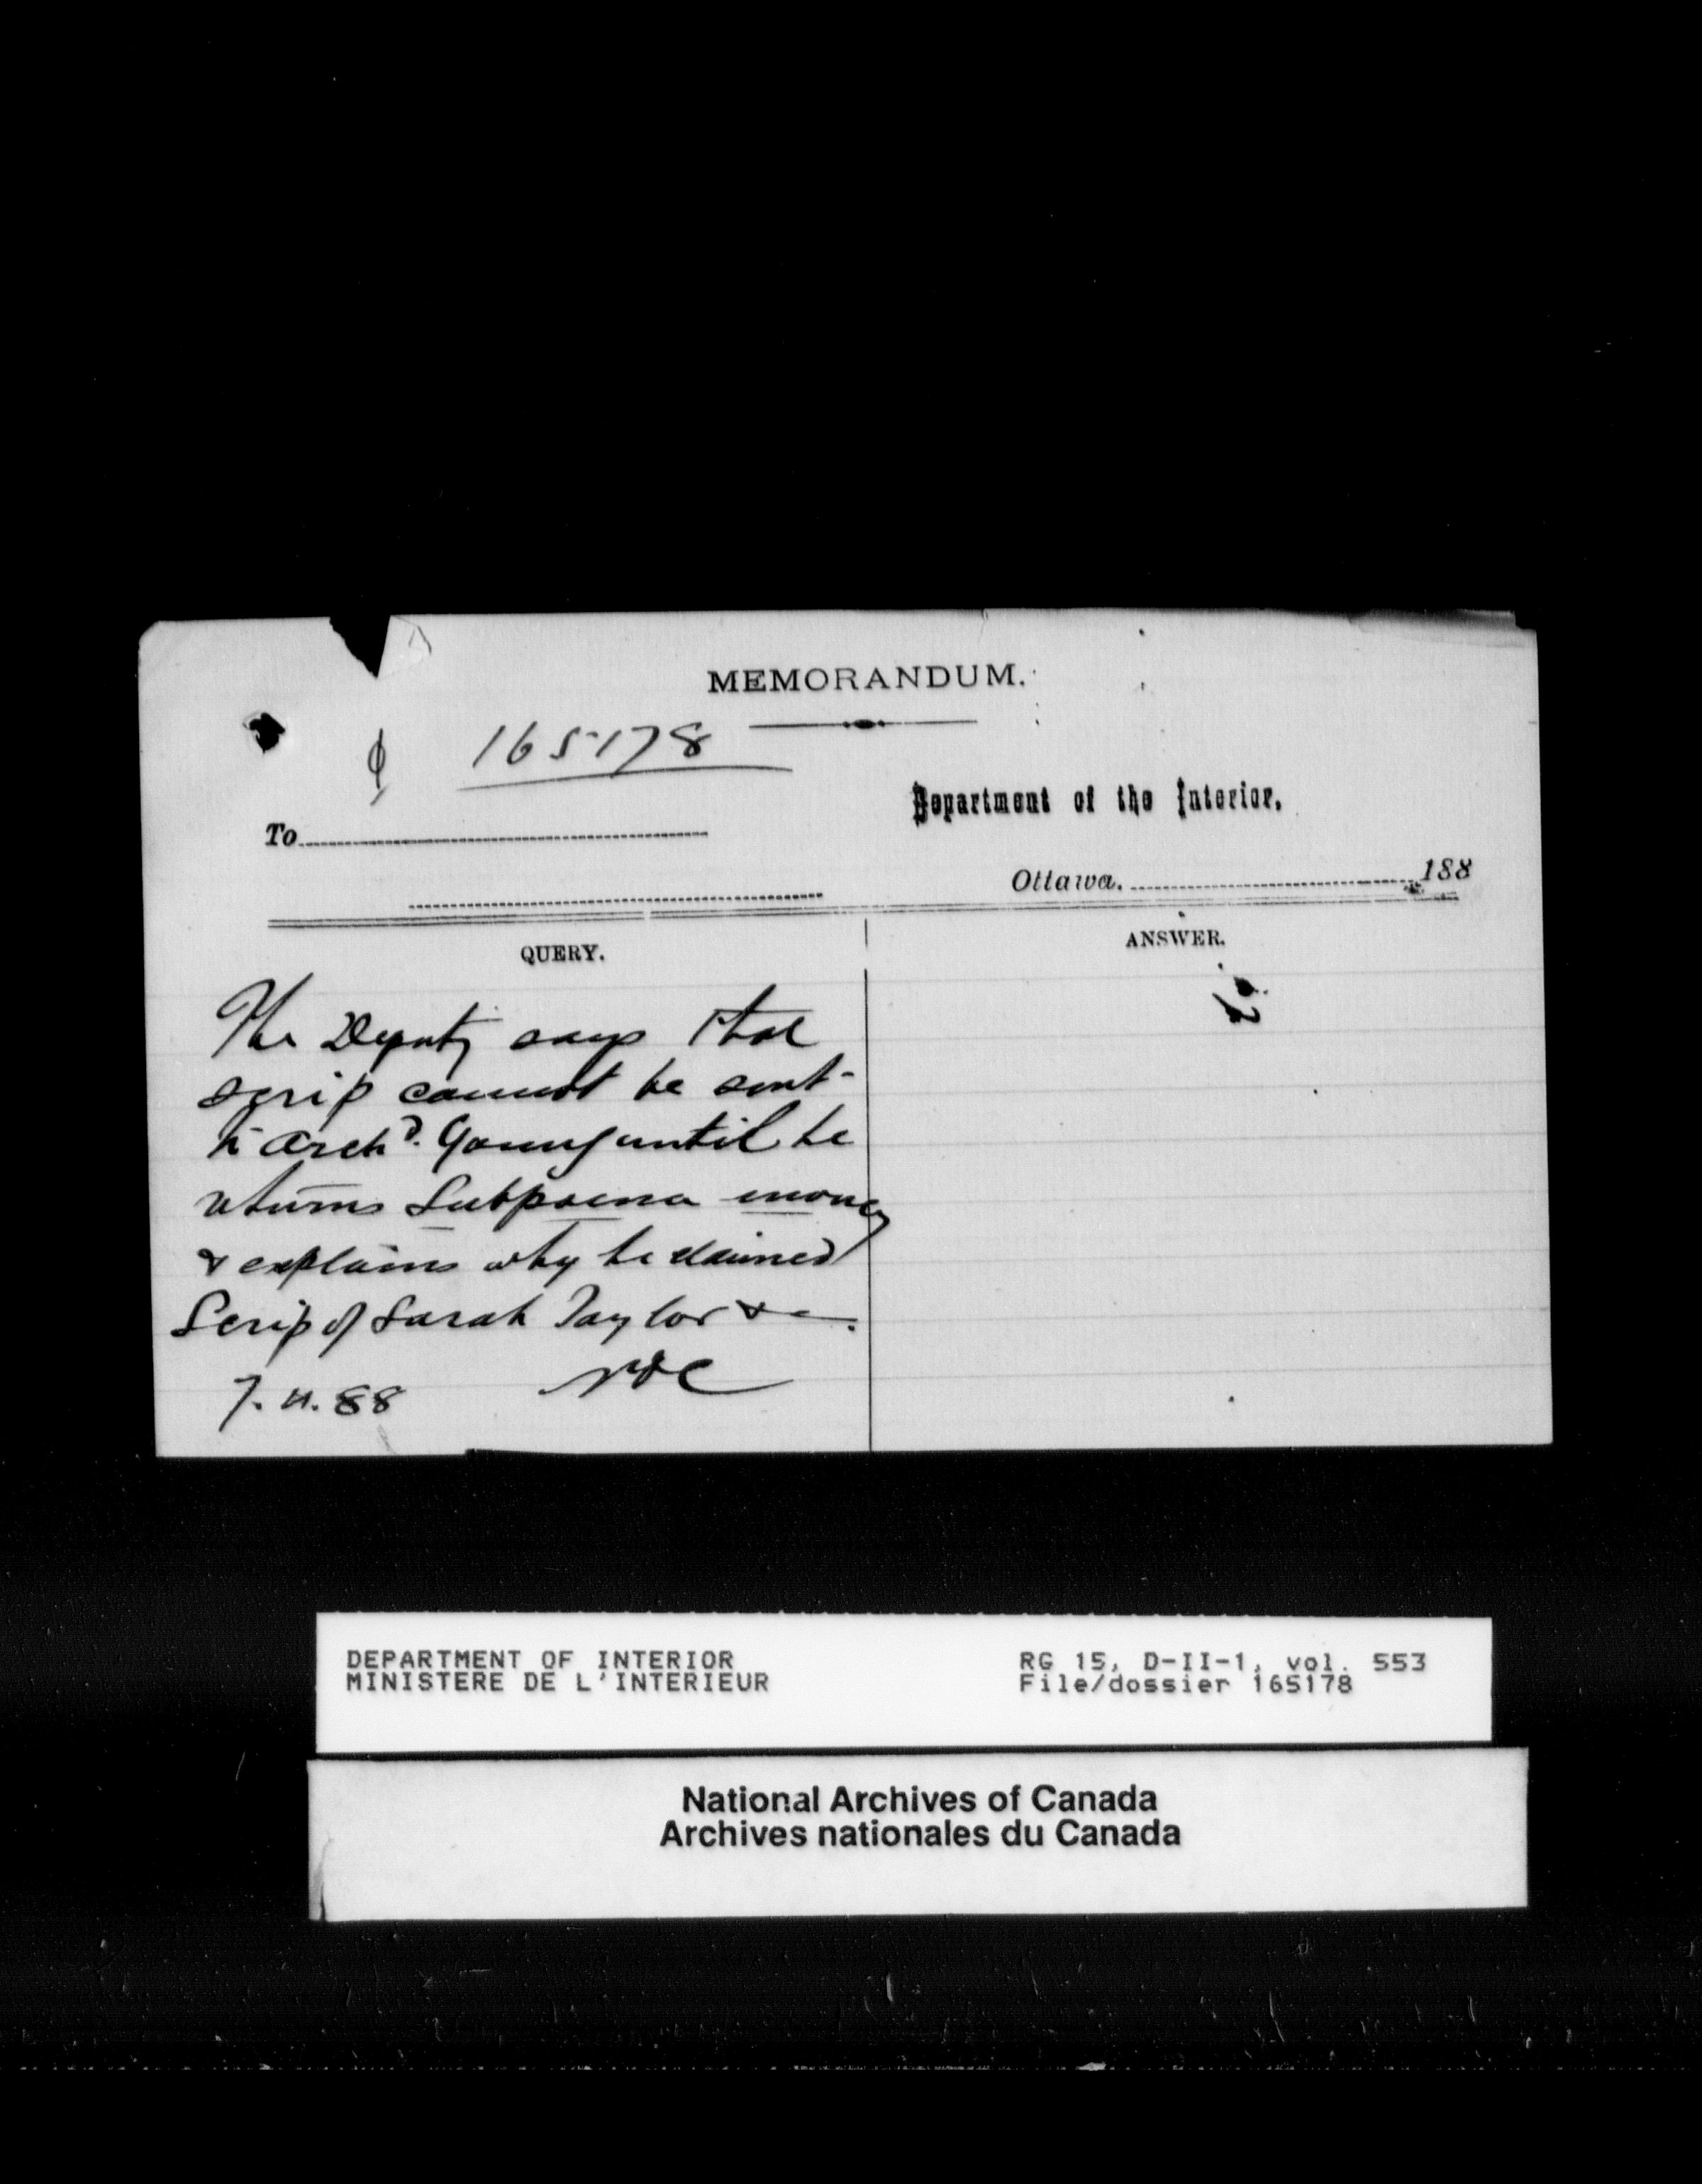 MEMORANDUM.
165178
Department of the Interior.
To
Ottawa. 188
QUERY.
ANSWER.
The Deputy says that
scrip cannot be sent
to Archd. Young until he
returns Subpoena money
& explains why he claimed
Scrip of Sarah Taylor &c.
7. 11. 88
DEPARTMENT OF INTERIOR
MINISTERE DE L'INTERIEUR
RG 15, D-II-1, vol. 553
File/dossier 165178
National Archives of Canada
Archives nationales du Canada